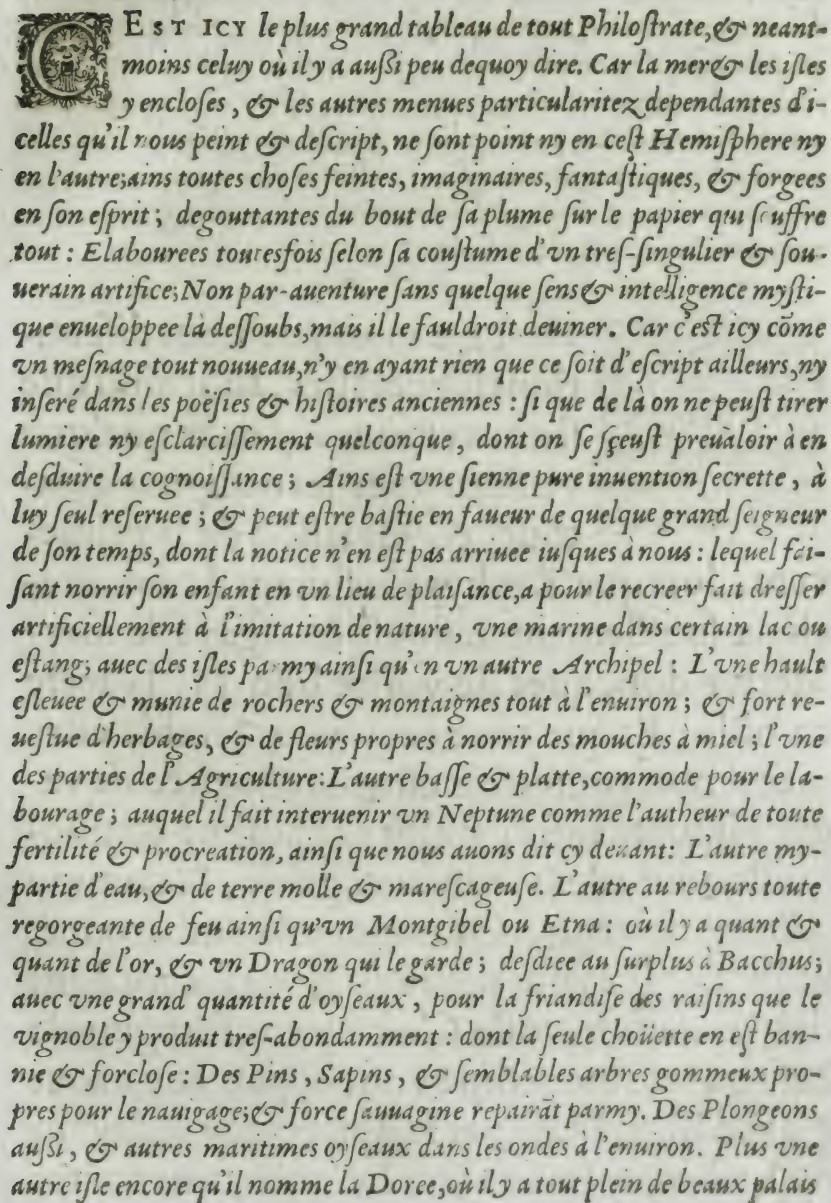 C'EST ICY le plus grand tableau de tout Philoſtrate, & neant-
moins celuy où il y a auſſi peu dequoy dire. Car la mer & les iſles
y encloſes, & les autres menues particularitez dependantes d'i-
celles qu'il nous peint & deſcript, ne ſont point ny en ceſt Hemiſphere ny
en l'autre; ains toutes choſes feintes, imaginaires, fantaſtiques, & forgees
en ſon eſprit; degouttantes du bout de ſa plume ſur le papier qui ſouffre
tout: Elabourees toutesfois ſelon ſa couſtume d'vn treſ-ſingulier & ſou-
uerain artifice; Non par-auenture ſans quelque ſens & intelligence myſti-
que enueloppee là deſſoubs, mais il le fauldroit deuiner. Car c'eſt icy cõme
vn meſnage tout nouueau, n'y en ayant rien que ce ſoit d'eſcript ailleurs, ny
inſeré dans les poëſies & hiſtoires anciennes: ſi que de là on ne peuſt tirer
lumiere ny eſclarciſſement quelconque, dont on ſe ſçeuſt preualoir à en
deſduire la cognoiſſance; Ains eſt vne ſienne pure inuention ſecrette, à
luy ſeul reſeruee; & peut eſtre baſtie en faueur de quelque grand ſeigneur
de ſon temps, dont la notice n'en eſt pas arriuee iuſques à nous: lequel fai-
ſant norrir ſon enfant en vn lieu de plaiſance, a pour le recreer fait dreſſer
artificiellement à l'imitation de nature, vne marine dans certain lac ou
eſtang; auec des iſles parmy ainſi qu'en vn autre Archipel: L'vne hault
eſleuee & munie de rochers & montaignes tout à l'enuiron; & fort re-
ueſtue d'herbages, & de fleurs propres à norrir des mouches à miel; l'vne
des parties de l'Agriculture: L'autre baſſe & platte, commode pour le la-
bourage; auquel il fait interuenir vn Neptune comme l'autheur de toute
fertilité & procreation, ainſi que nous auons dit cy deuant: L'autre my-
partie d'eau, & de terre molle & mareſcageuſe. L'autre au rebours toute
regorgeante de feu ainſi qu'vn Montgibel ou Etna: où il y a quant &
quant de l'or, & vn Dragon qui le garde; deſdiee au ſurplus à Bacchus;
auec vne grand' quantité d'oyſeaux, pour la friandiſe des raiſins que le
vignoble y produit treſ-abondamment: dont la ſeule choüette en eſt ban-
nie & forcloſe: Des Pins, Sapins, & ſemblables arbres gommeux pro-
pres pour le nauigage; & force ſauuagine repairãt parmy. Des Plongeons
auſſi, & autres maritimes oyſeaux dans les ondes à l'enuiron. Plus vne
autre iſle encore qu'il nomme la Doree, où il y a tout plein de beaux palais